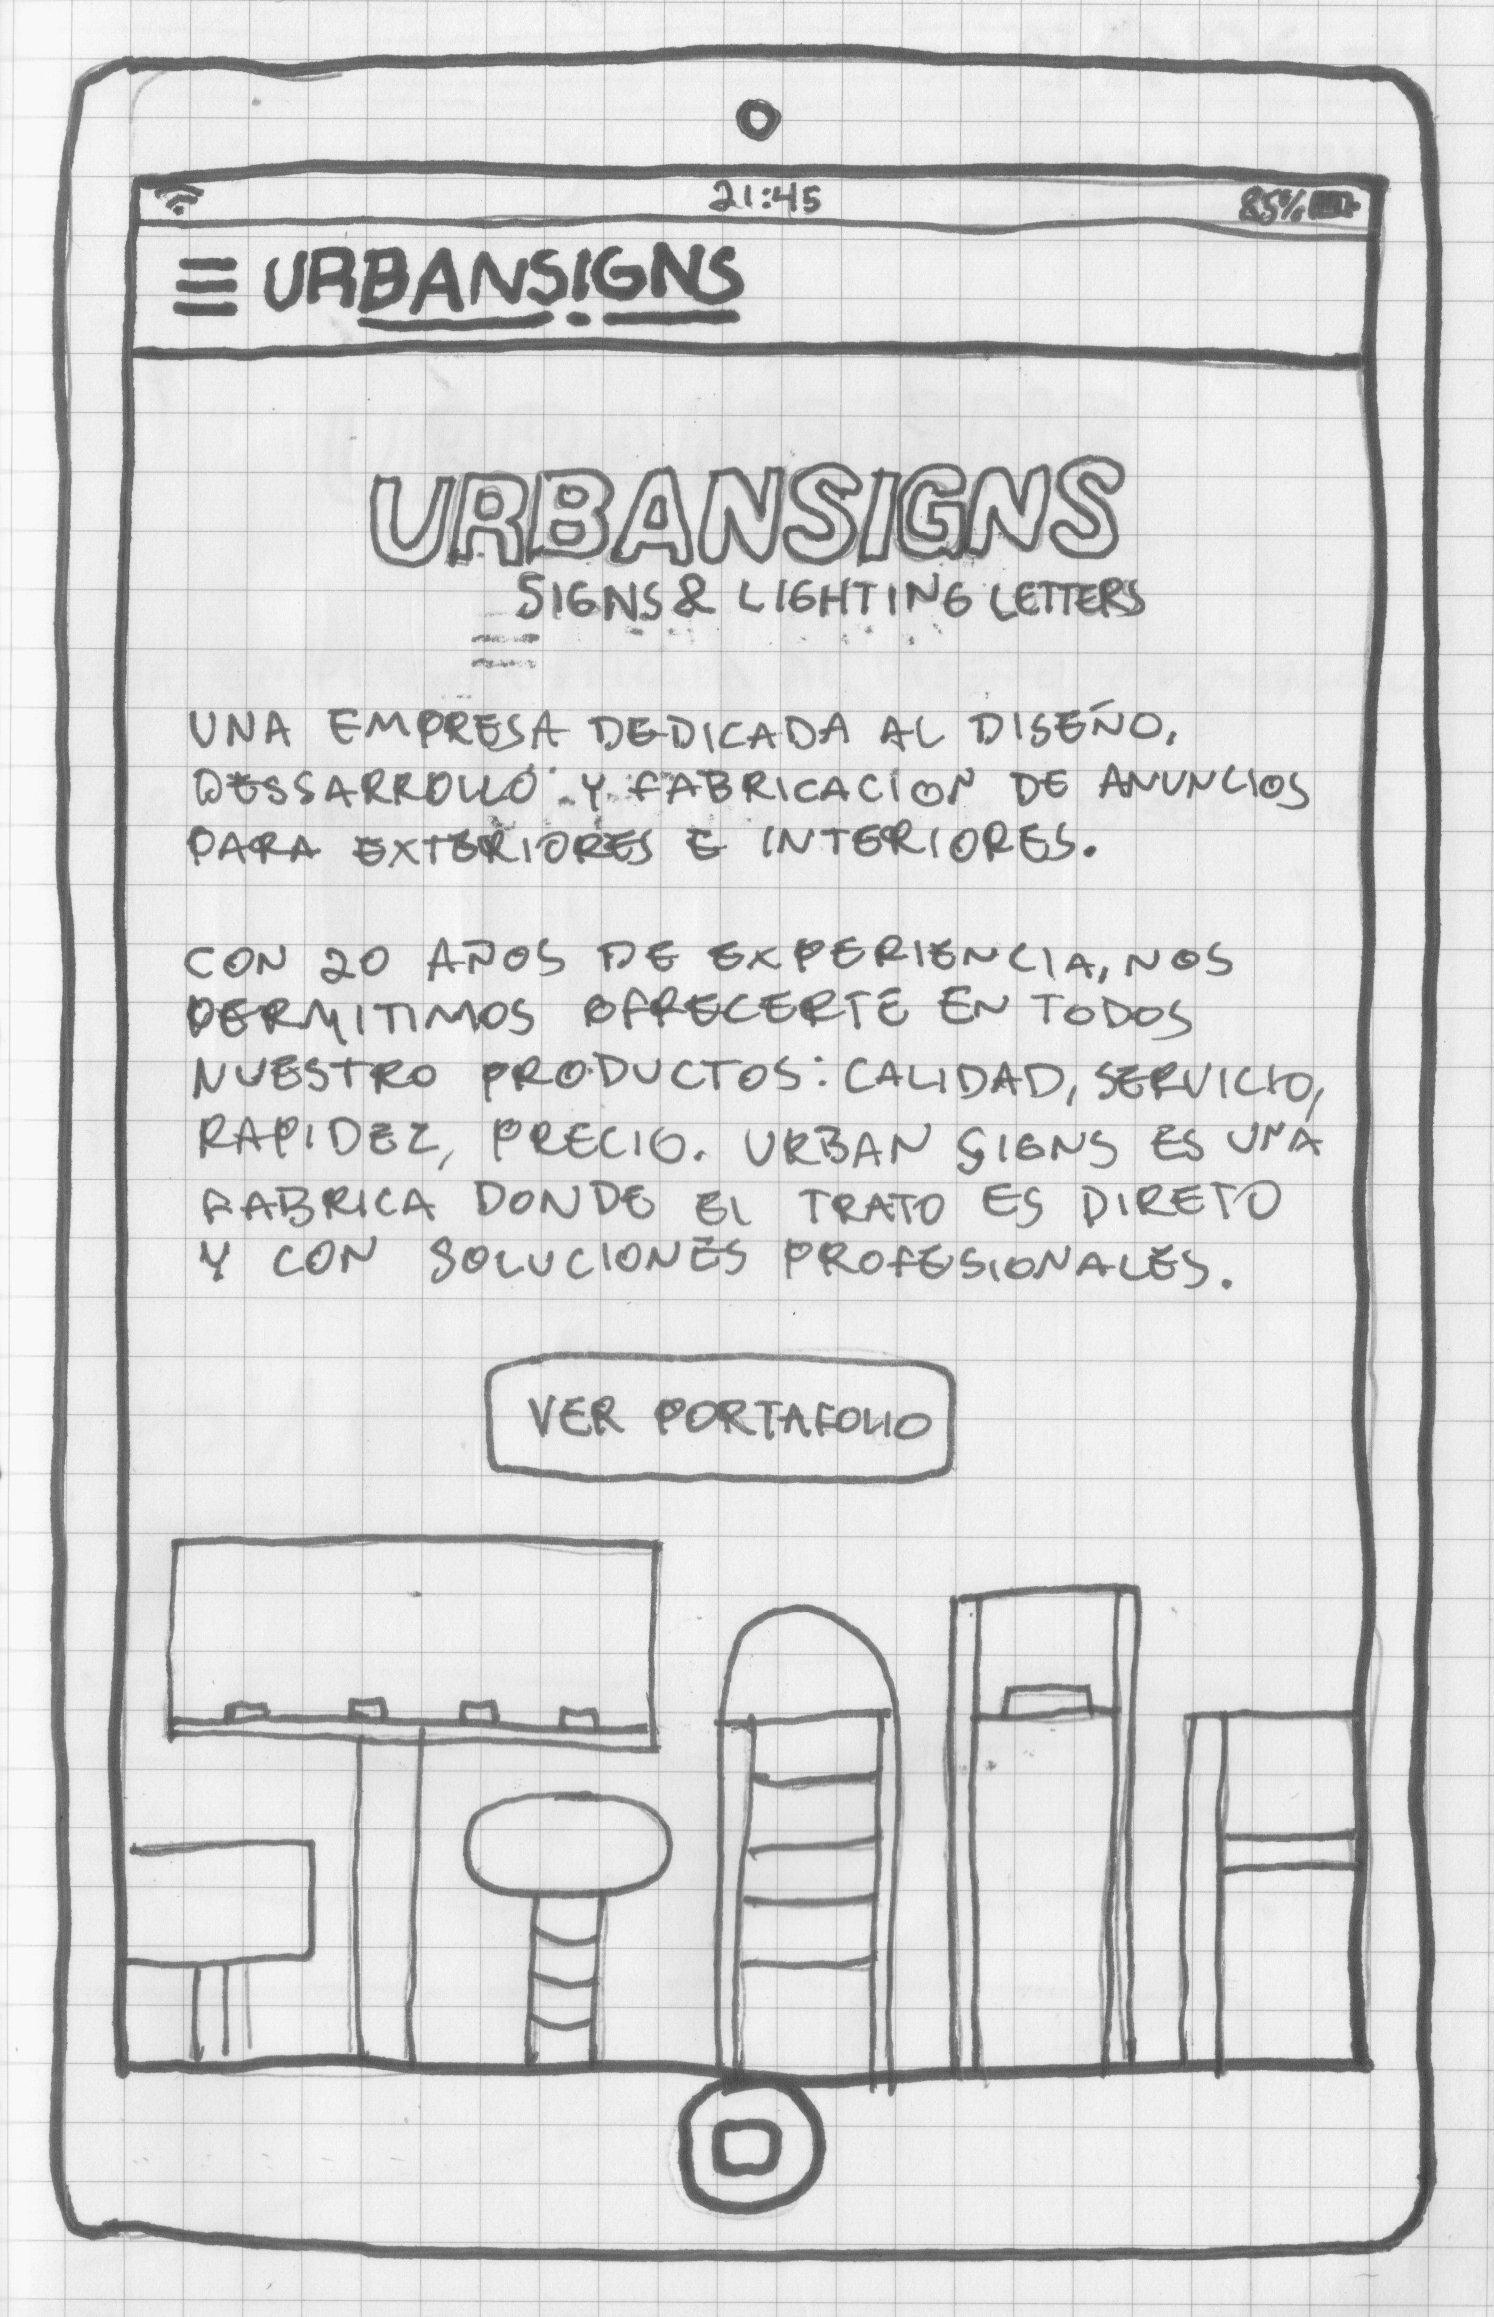 21:45
85%
URBANSIGNS
URBANSIGNS
SIGNS & LIGHTING LETTERS
UNA EMPRESA DEDICADA AL DISEÑO,
DESSARROLLO Y FABRICACION DE ANUNCIOS
PARA EXTERIORES E INTERIORES.
CON 20 AÑOS DE EXPERIENCIA, NOS
PERMITIMOS OFRECERTE EN TODOS
NUESTRO PRODUCTOS: CALIDAD, SERVICIO,
RAPIDEZ, PRECIO. URBAN SIGNS ES UNA
FABRICA DONDE EL TRATO ES DIRETO
Y CON SOLUCIONES PROFESIONALES.
VER PORTAFOLIO